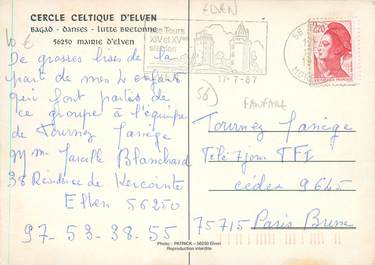 CERCLE CELTIQUE D'ELVEN
BAGAD - DANSES - LUTTE BRETONNE
56250 MAIRIE D'ELVEN
De grosses bises de la
part de mes 2 enfants
qui font partie de
ce groupe à l'équipe
de Tournez Manège
M me Marelle Blanchard
38 Résidence de Kercointe
Elven 56250
97-53-38-55
ELVEN
Les Tours
XIVe et XVe
siècles
11-7-87
56
2,20
(56)
FANFARE
Tournez Manège
Télé 7 jours TF1
cedex 9645
75715 Paris Brune
Photo : PATRICK - 56250 Elven
Reproduction interdite